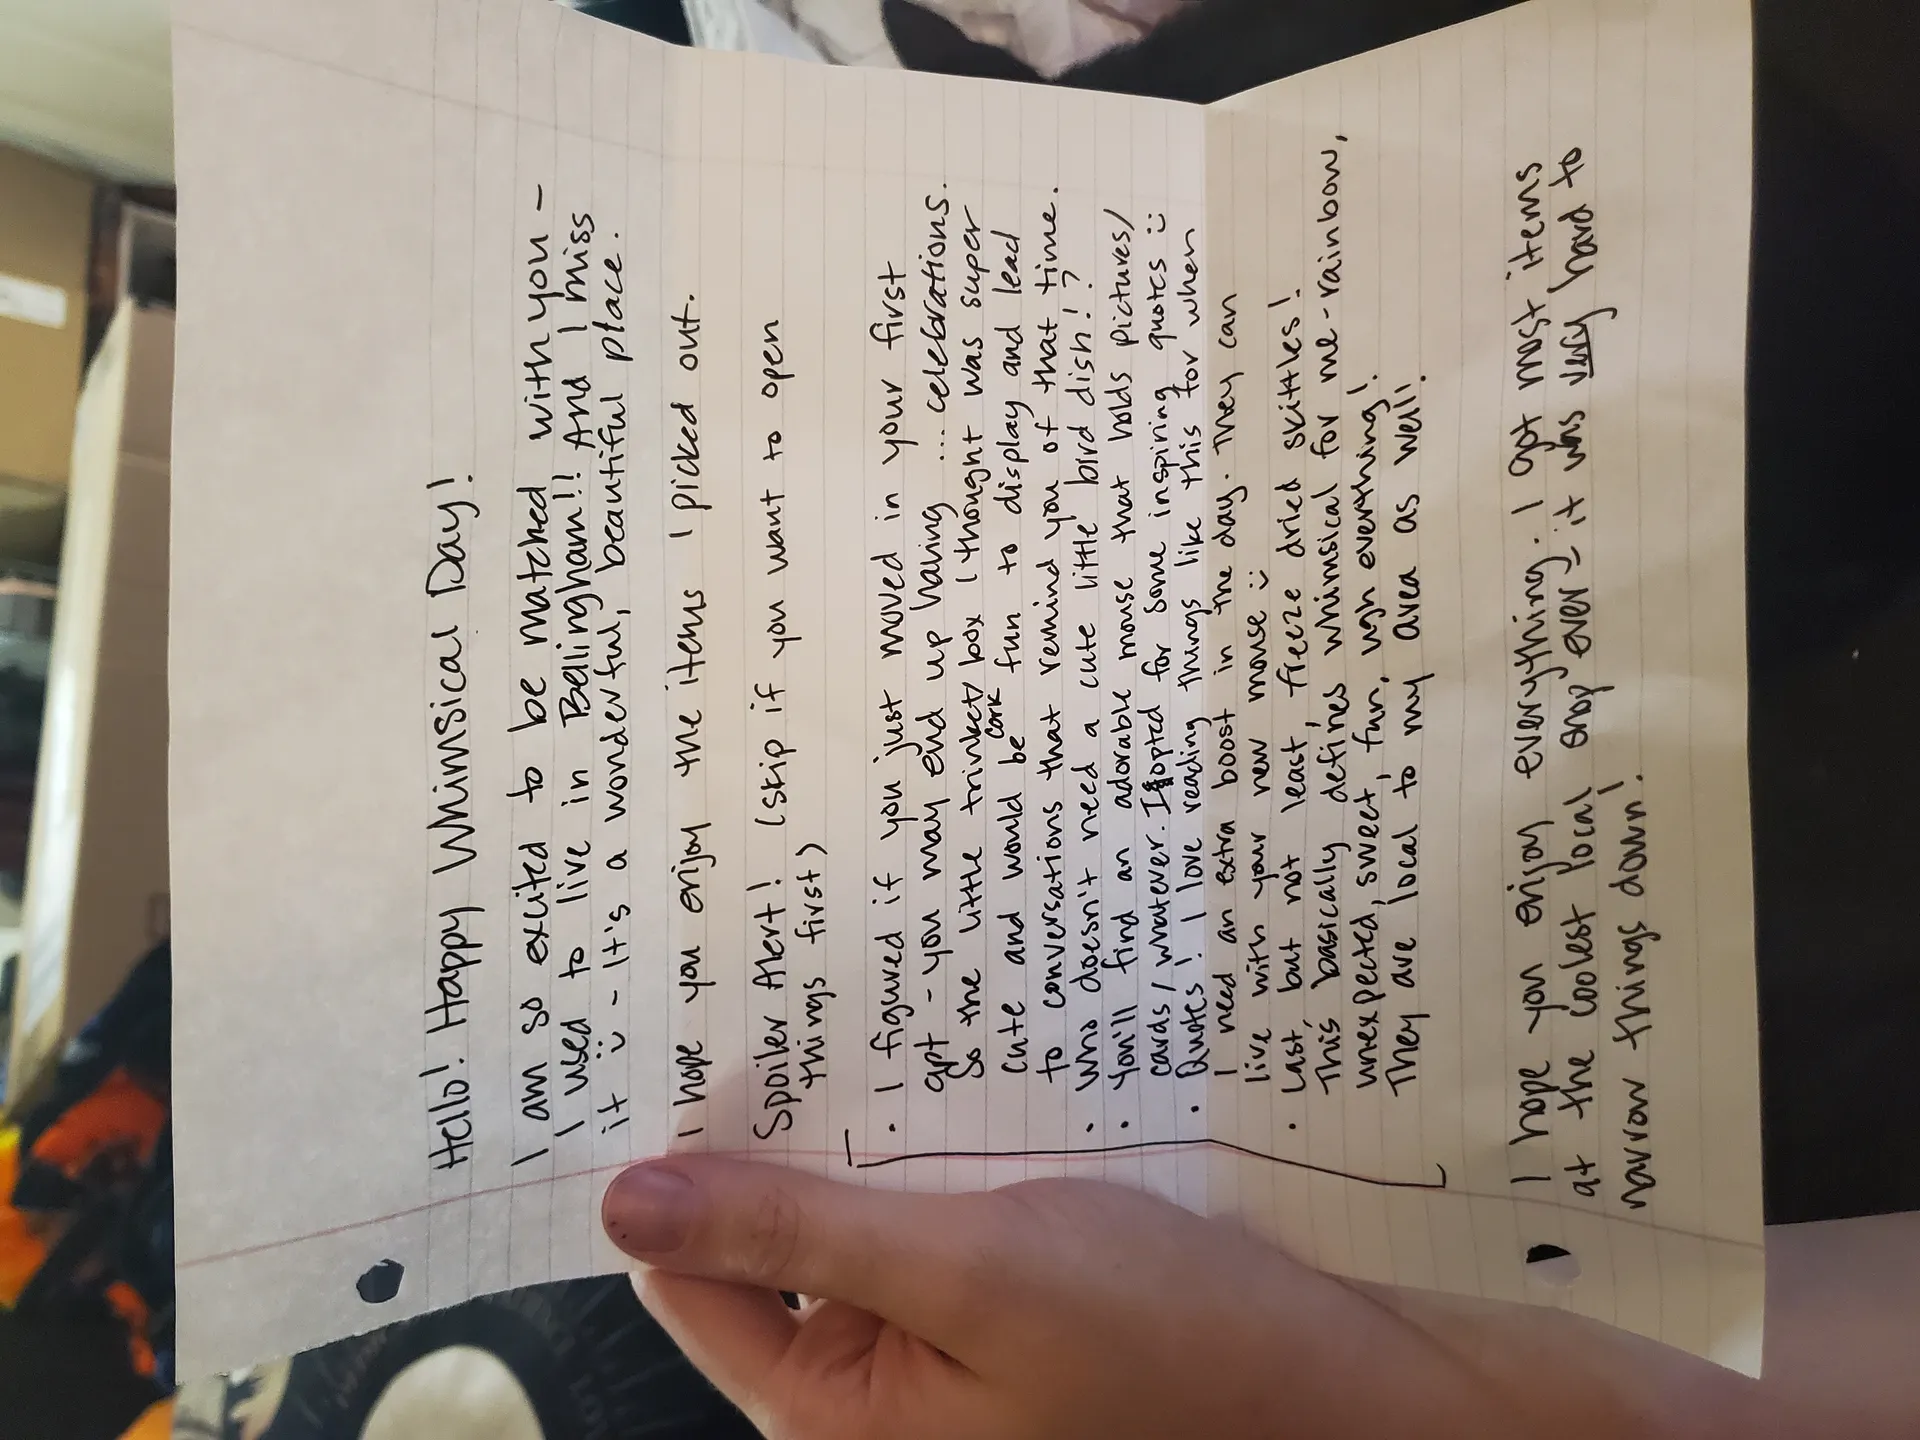 Hello! Happy Whimsical Day!
I am so excited to be matched with you -
I used to live in Bellingham!! And I miss
it :) - It's a wonderful, beautiful place.
I hope you enjoy the items I picked out.
Spoiler Alert! (skip if you want to open
things first)
• I figured if you just moved in your first
apt - you may end up having ... celebrations.
So the little trinket/cork box I thought was super
cute and would be fun to display and lead
to conversations that remind you of that time.
• Who doesn't need a cute little bird dish!?
• You'll find an adorable mouse that holds pictures/
cards/whatever. I opted for some inspiring quotes :)
• Quotes! I love reading things like this for when
I need an extra boost in the day. They can
live with your new mouse :)
• Last but not least, freeze dried skittles!
This basically defines whimsical for me - rainbow,
unexpected, sweet, fun, ugh everthing!
They are local to my area as well!
I hope you enjoy everything. I got most items
at the coolest local shop ever - it was very hard to
narrow things down!